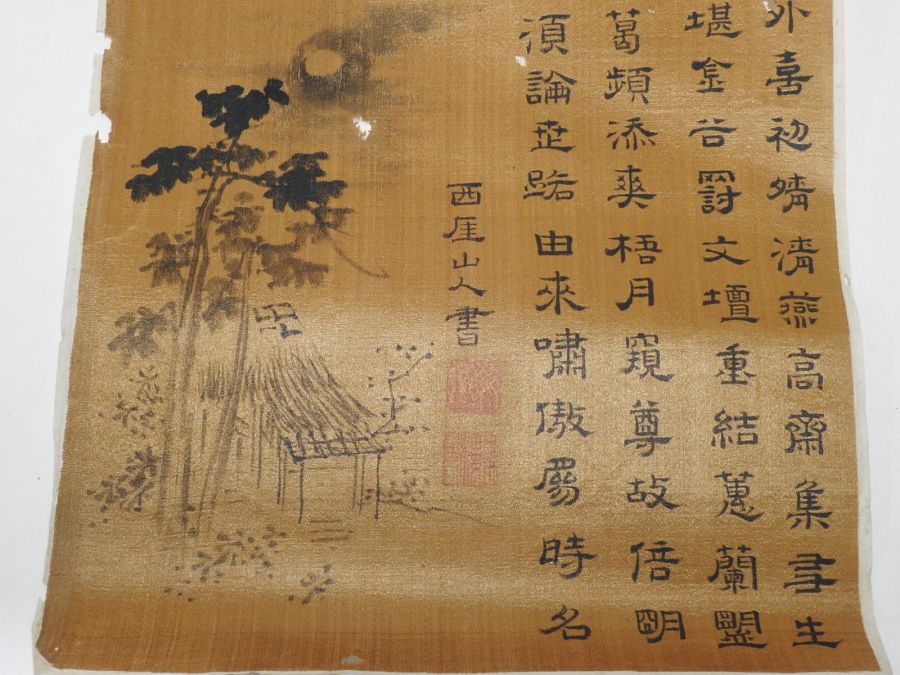 外喜初晴清燕高齋集友生
堪金谷罰文壇重結蕙蘭盟
葛頻添爽梧月窺尊故倍明
須論世路由來嘯傲屬時名
西厓山人書